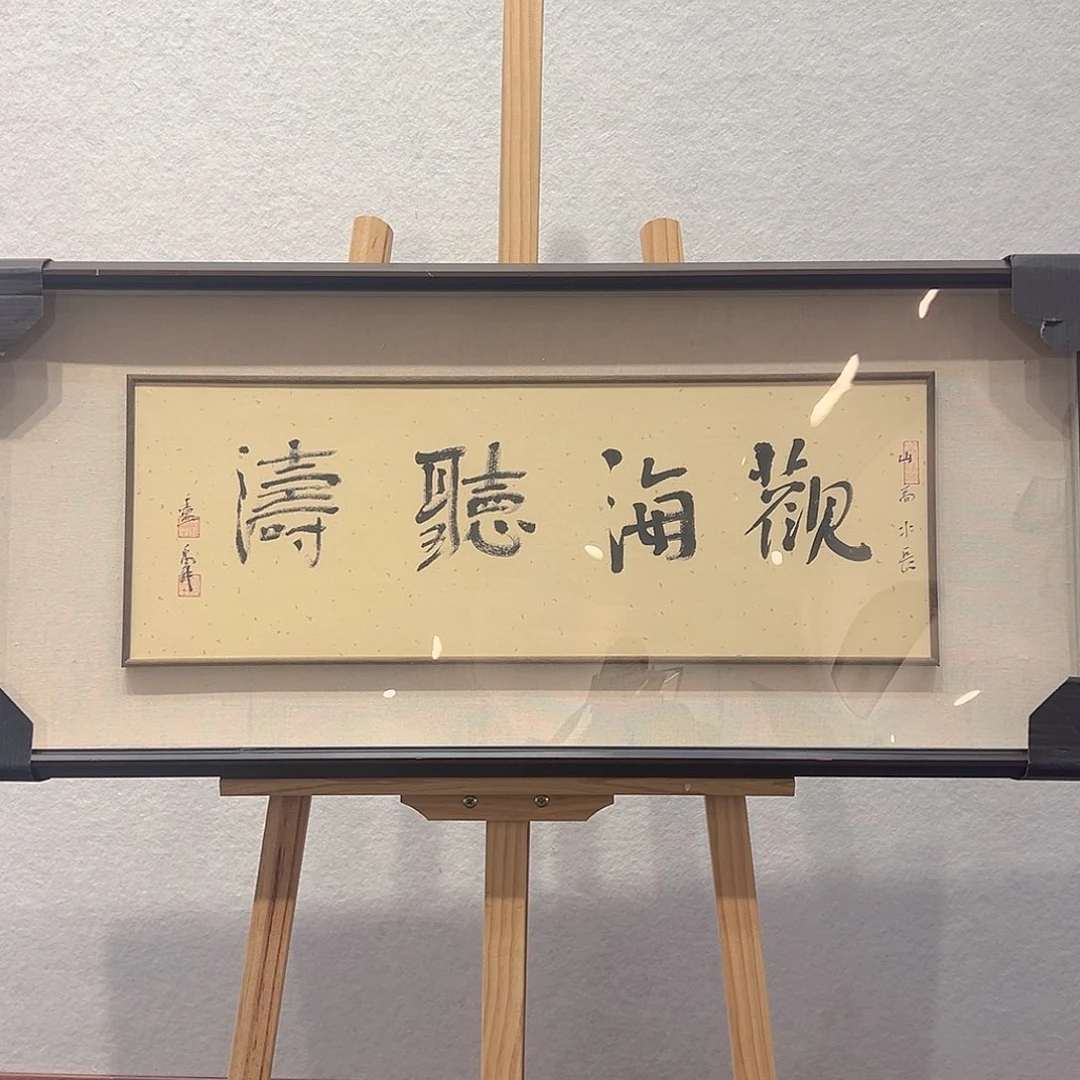 觀海聽濤
山高水長